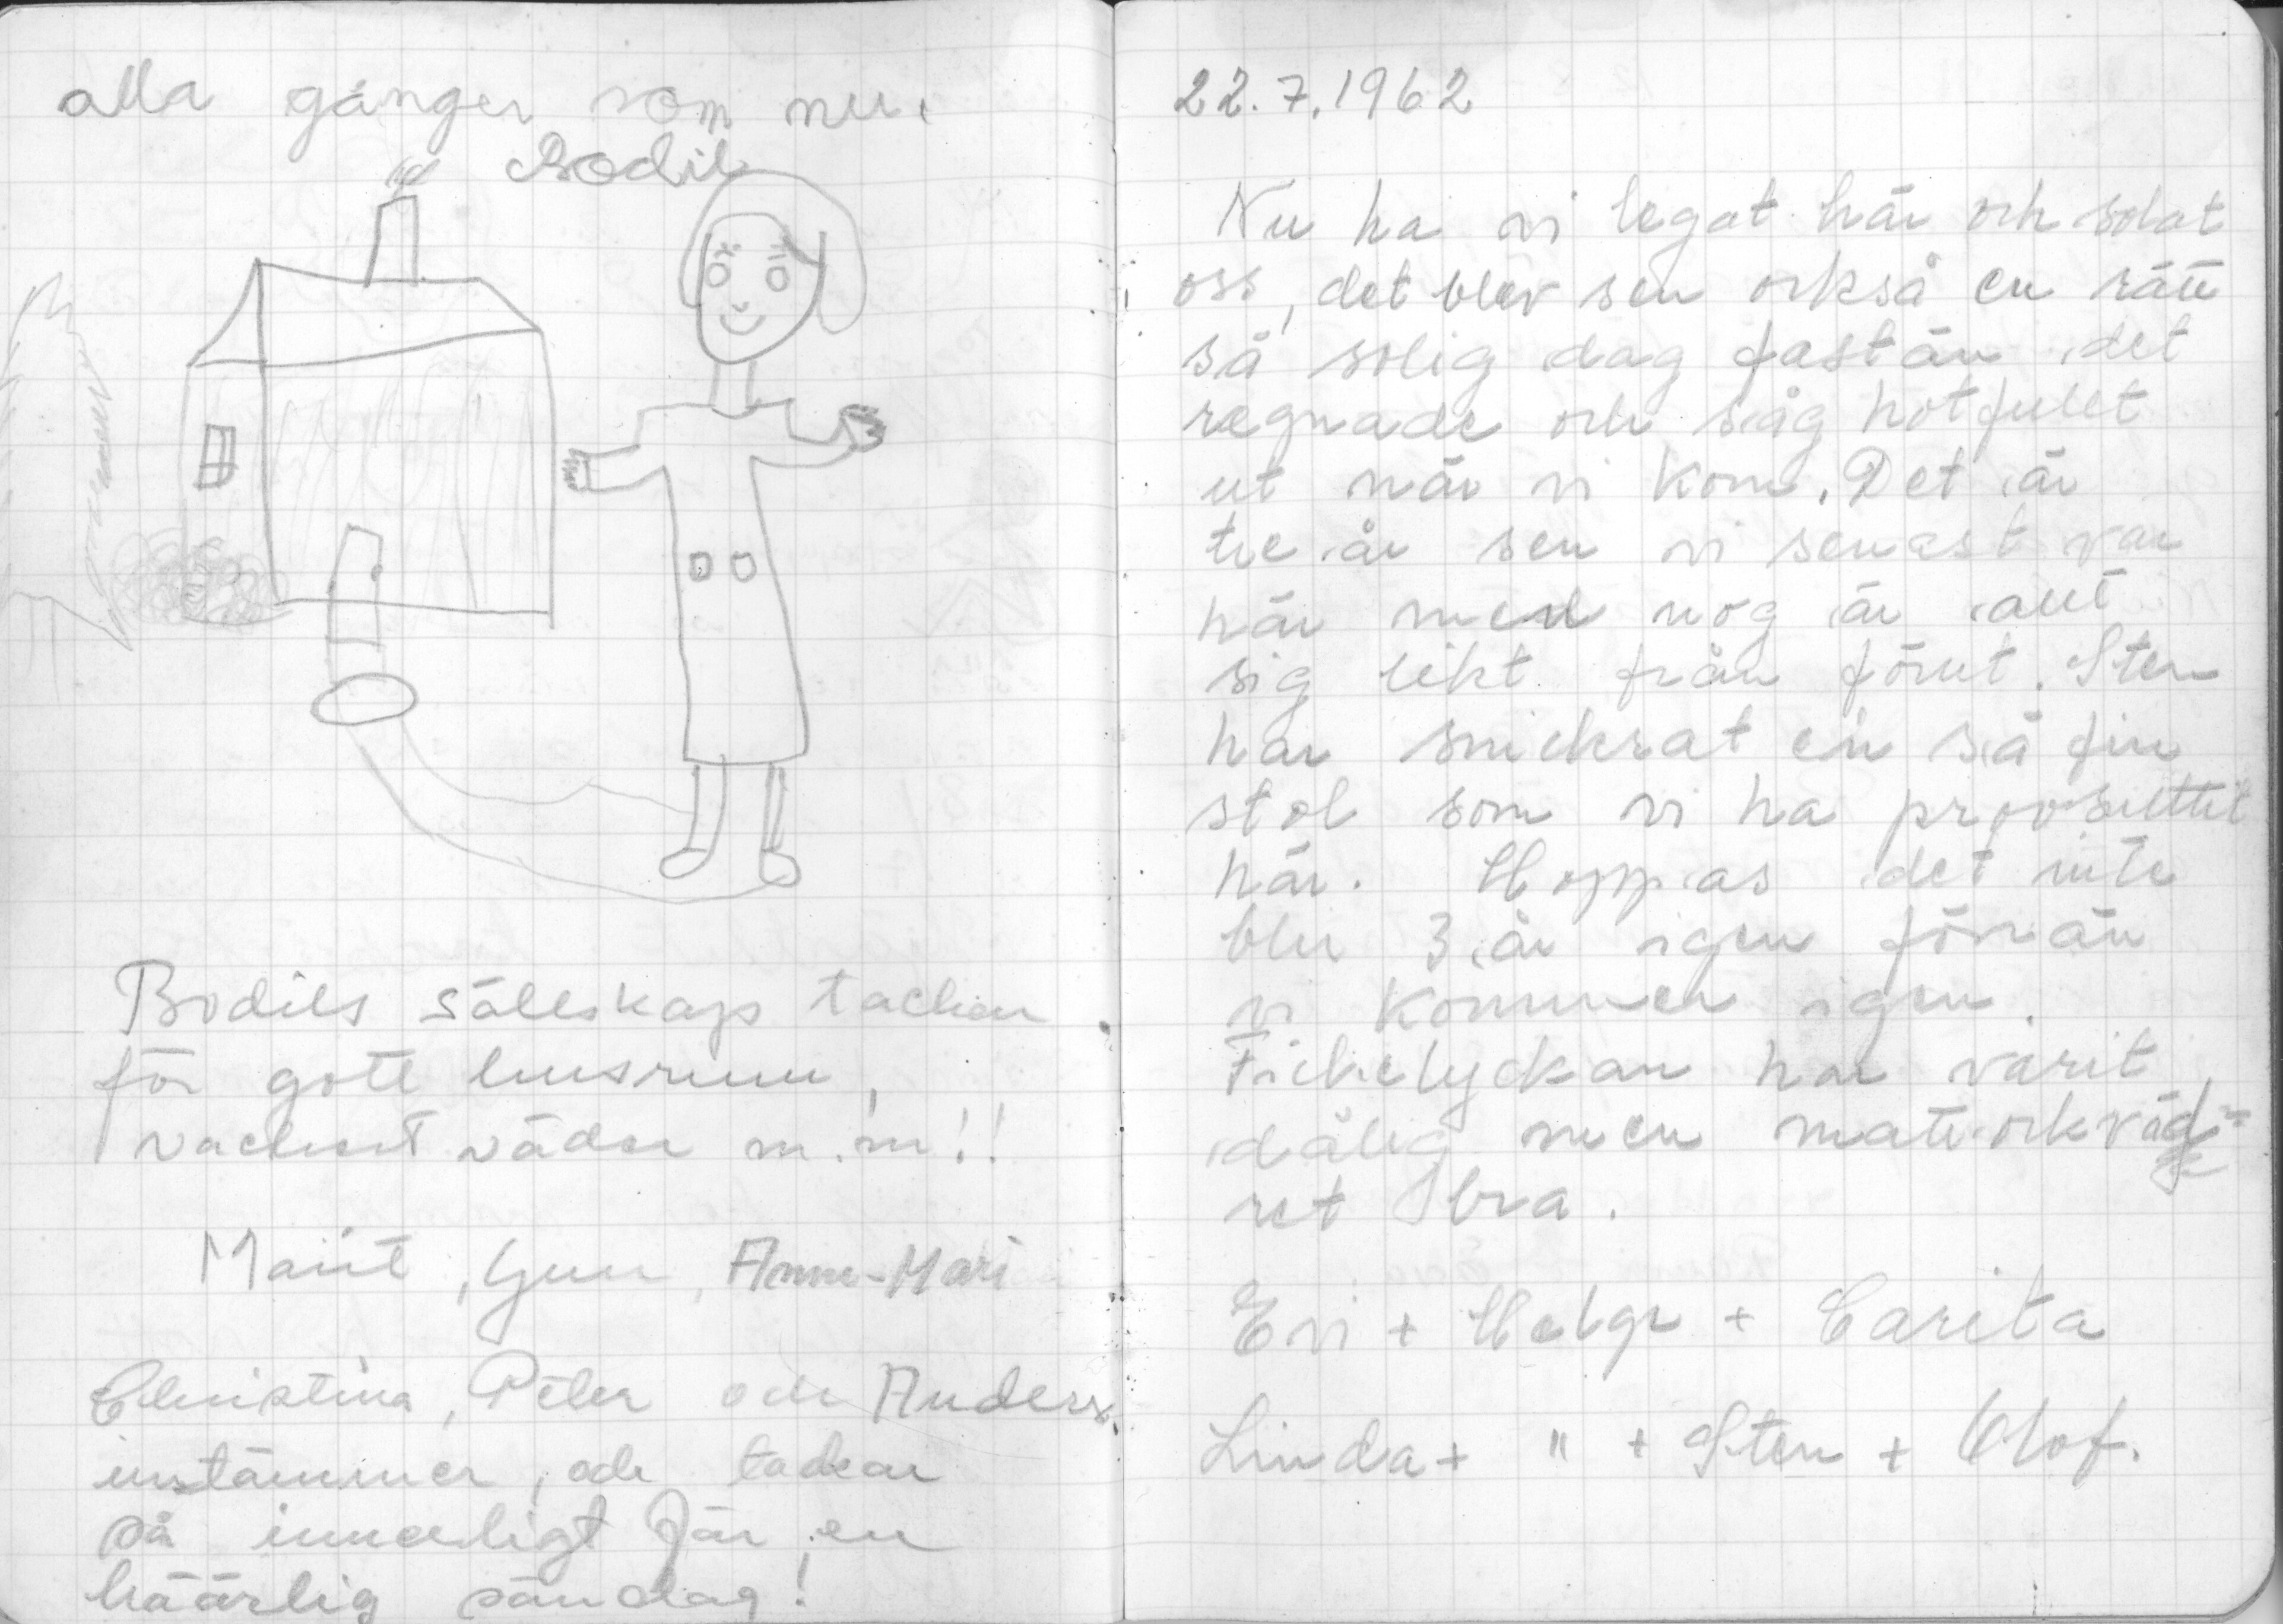 alla gånger som nu.
Bodil
Bodils sällskap tackar
för gott husrum,
vackert väder m.m!!
Mait, Gun, Ann-Mari
Christina, Peter och Anders
instämmer, och tackar
så innerligt för en
häärlig söndag!
22.7.1962
Nu ha vi legat här och solat
oss, det blev sen också en rätt
så solig dag fastän det
regnade och såg hotfullt
ut när vi kom. Det är
tre år sen vi senast var
här men nog är allt
sig likt från förut. Sten
har snickrat en så fin
stol som vi ha provsuttit
här. Hoppas det inte
blir 3 år igen förrän
vi kommer igen.
Fiskelyckan har varit
dålig men mat och väd-
ret bra.
Evi + Helge + Carita
Linda + " + Sten + Olof.